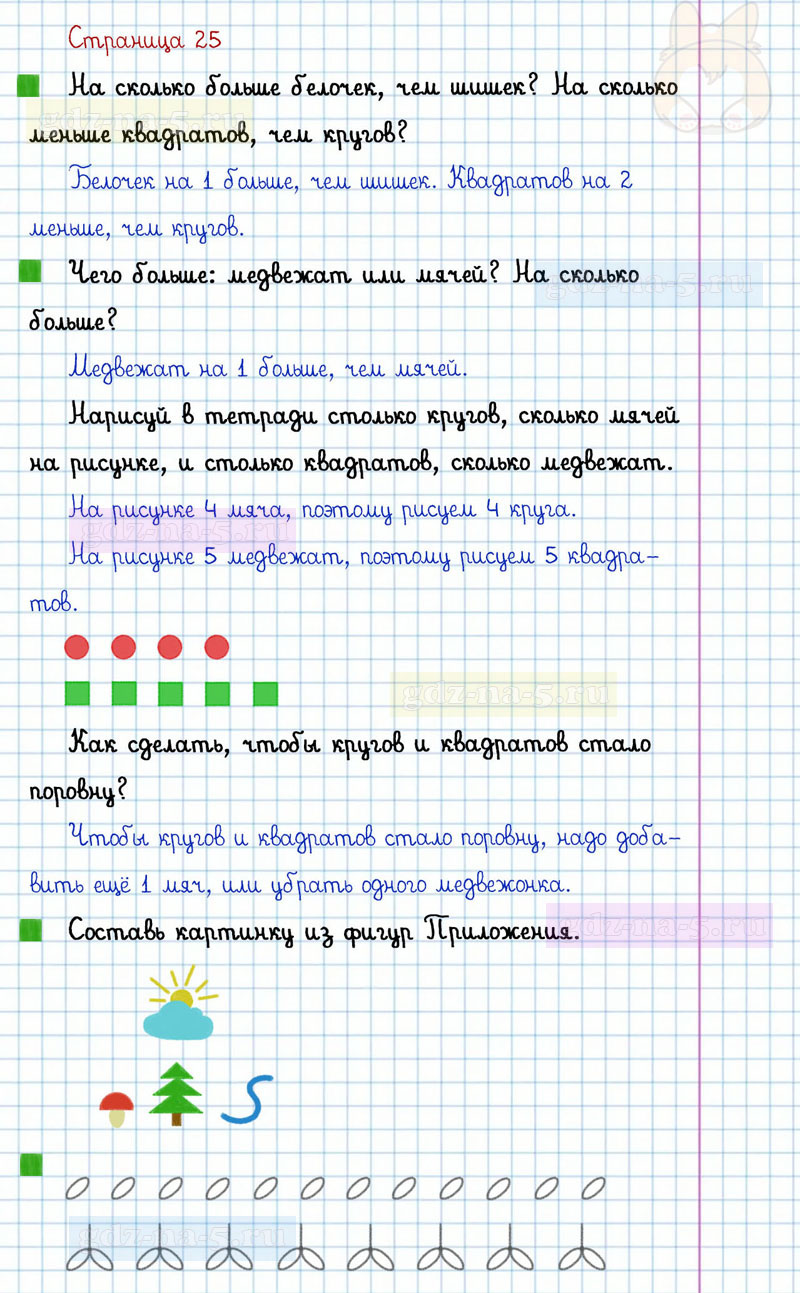 Страница 25
На сколько больше белочек, чем шишек? На сколько
gdz-na-5.ru
меньше квадратов, чем кругов?
Белочек на 1 больше, чем шишек. Квадратов на 2
меньше, чем кругов.
Чего больше: медвежат или мячей? На сколько
gdz-na-5.ru
больше?
Медвежат на 1 больше, чем мячей.
Нарисуй в тетради столько кругов, сколько мячей
на рисунке, и столько квадратов, сколько медвежат.
На рисунке 4 мяча, поэтому рисуем 4 круга.
gdz-na-5.ru
На рисунке 5 медвежат, поэтому рисуем 5 квадра-
тов.
gdz-na-5.ru
Как сделать, чтобы кругов и квадратов стало
поровну?
Чтобы кругов и квадратов стало поровну, надо доба-
вить ещё 1 мяч, или убрать одного медвежонка.
Составь картинку из фигур Приложения.
gdz-na-5.ru
gdz-na-5.ru